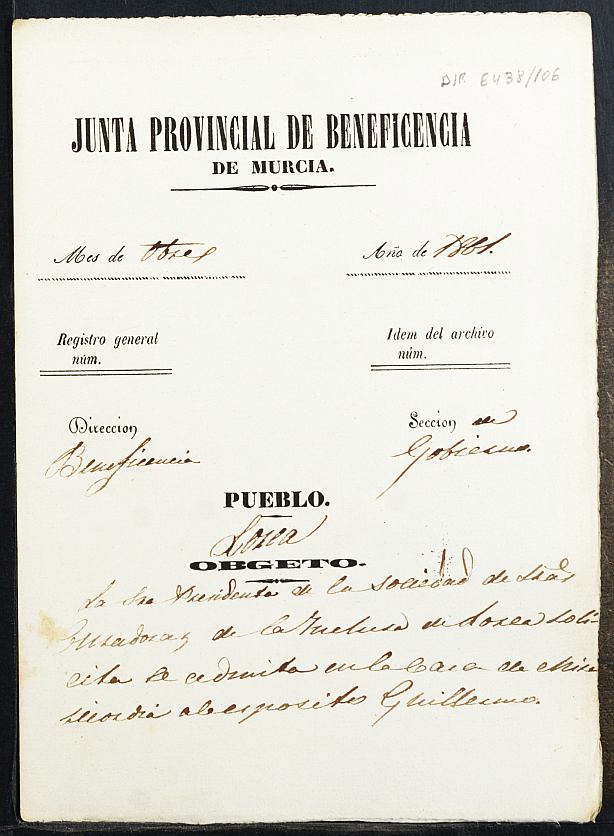 DIP. 6438/106
JUNTA PROVINCIAL DE BENEFICENCIA
DE MURCIA.
Mes de
Año de 1861.
Registro general
núm.
Idem del archivo
núm.
Direccion
Beneficencia
Seccion de
Gobierno.
PUEBLO.
Lorca
OBGETO.
La Sra Presidenta de la Sociedad de Sras
Curadoras de la Inclusa de Lorca soli-
cita se admita en la Casa de Mise-
ricordia al esposito Guillermo.